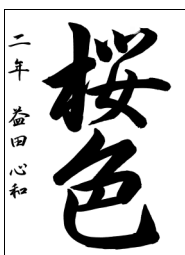 桜色
二年 益田心和